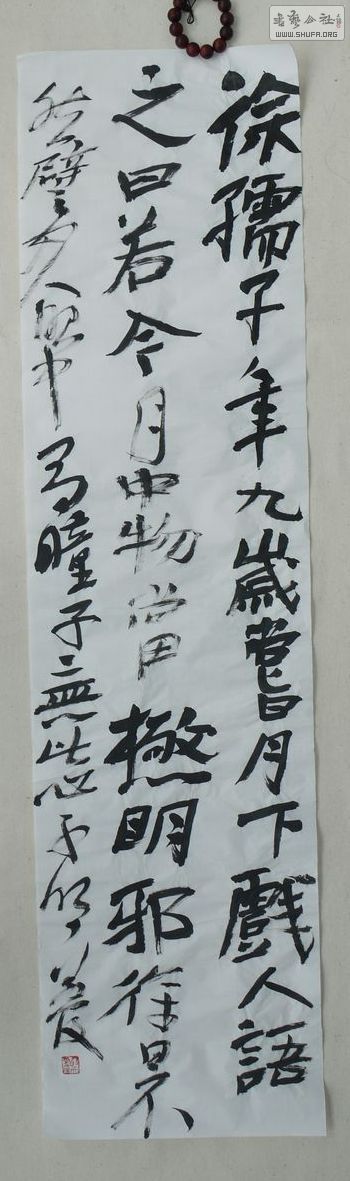 書藝公社
WWW.SHUFA.ORG
徐孺子年九歲嘗月下戲人語
之曰若令月中物當極明邪徐曰不
然譬如人眼中有瞳子無此必不明